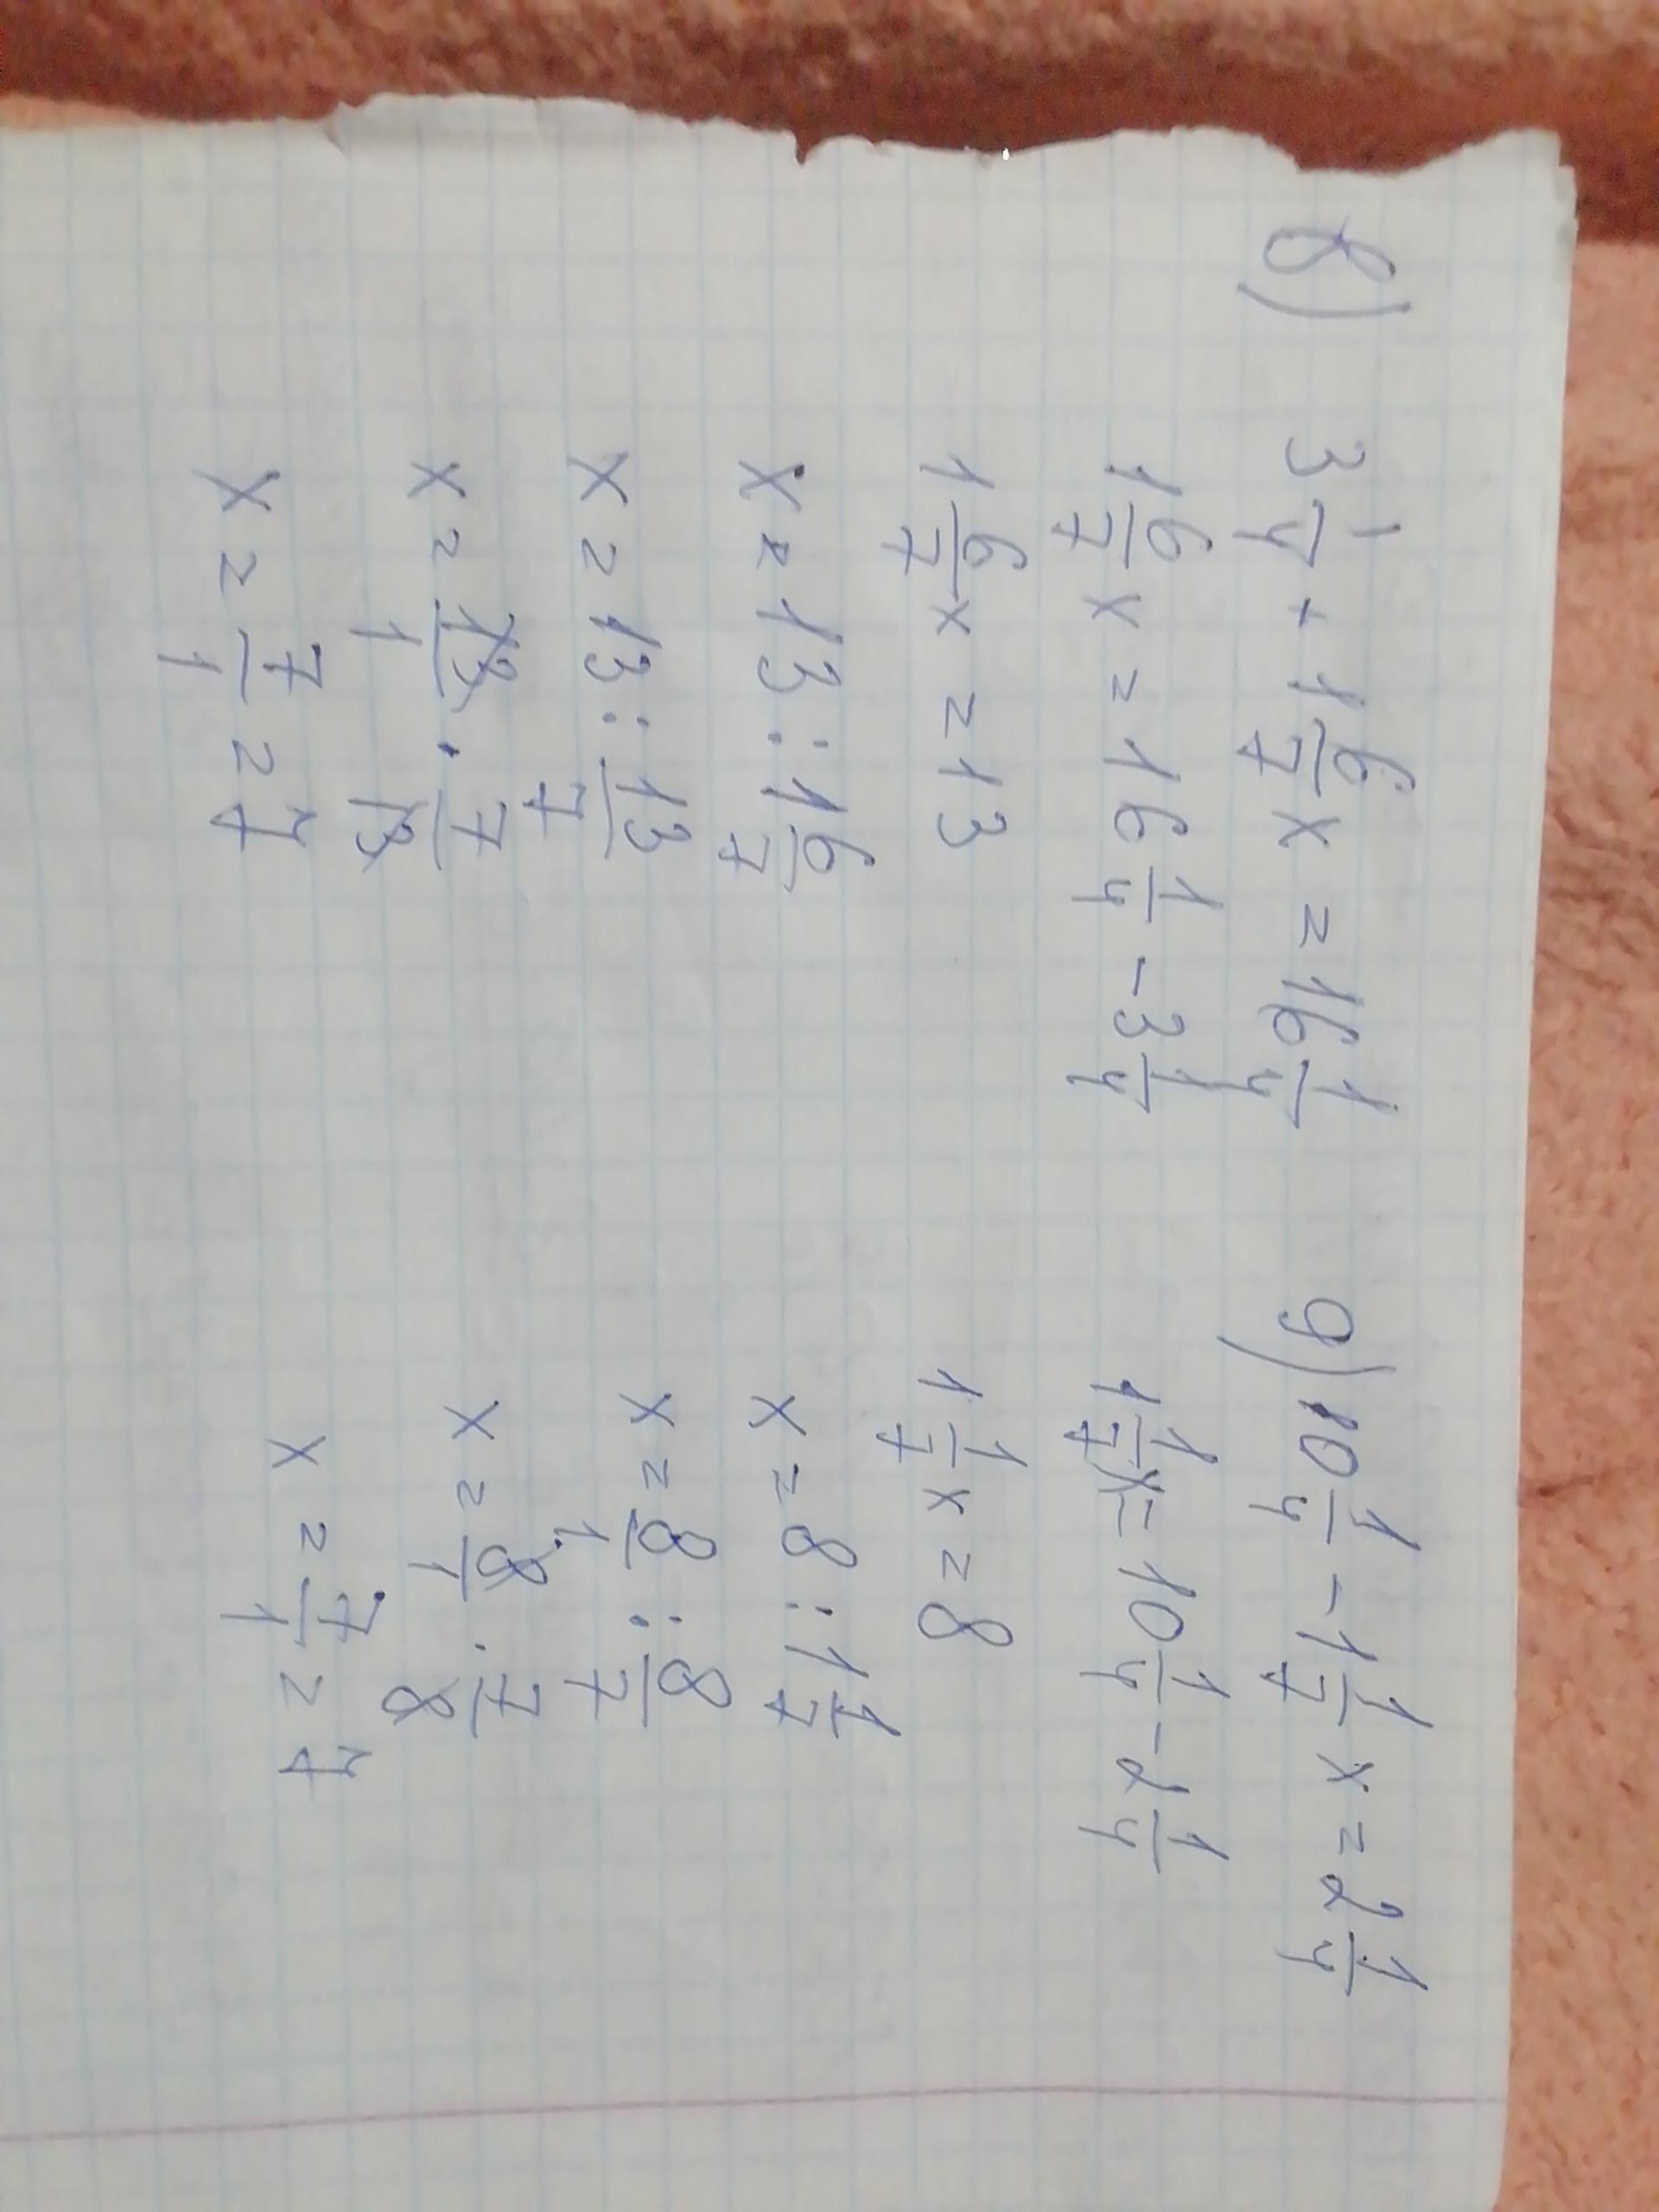 8) 3 1/4 + 1 6/7 x = 16 1/4
1 6/7 x = 16 1/4 - 3 1/4
1 6/7 x = 13
x = 13 : 1 6/7
x = 13 : 13/7
x = 13/1 · 7/13
x = 7/1 = 7
9) 10 1/4 - 1 1/7 x = 2 1/4
1 1/7 x = 10 1/4 - 2 1/4
1 1/7 x = 8
x = 8 : 1 1/7
x = 8/1 : 8/7
x = 8/1 · 7/8
x = 7/1 = 7